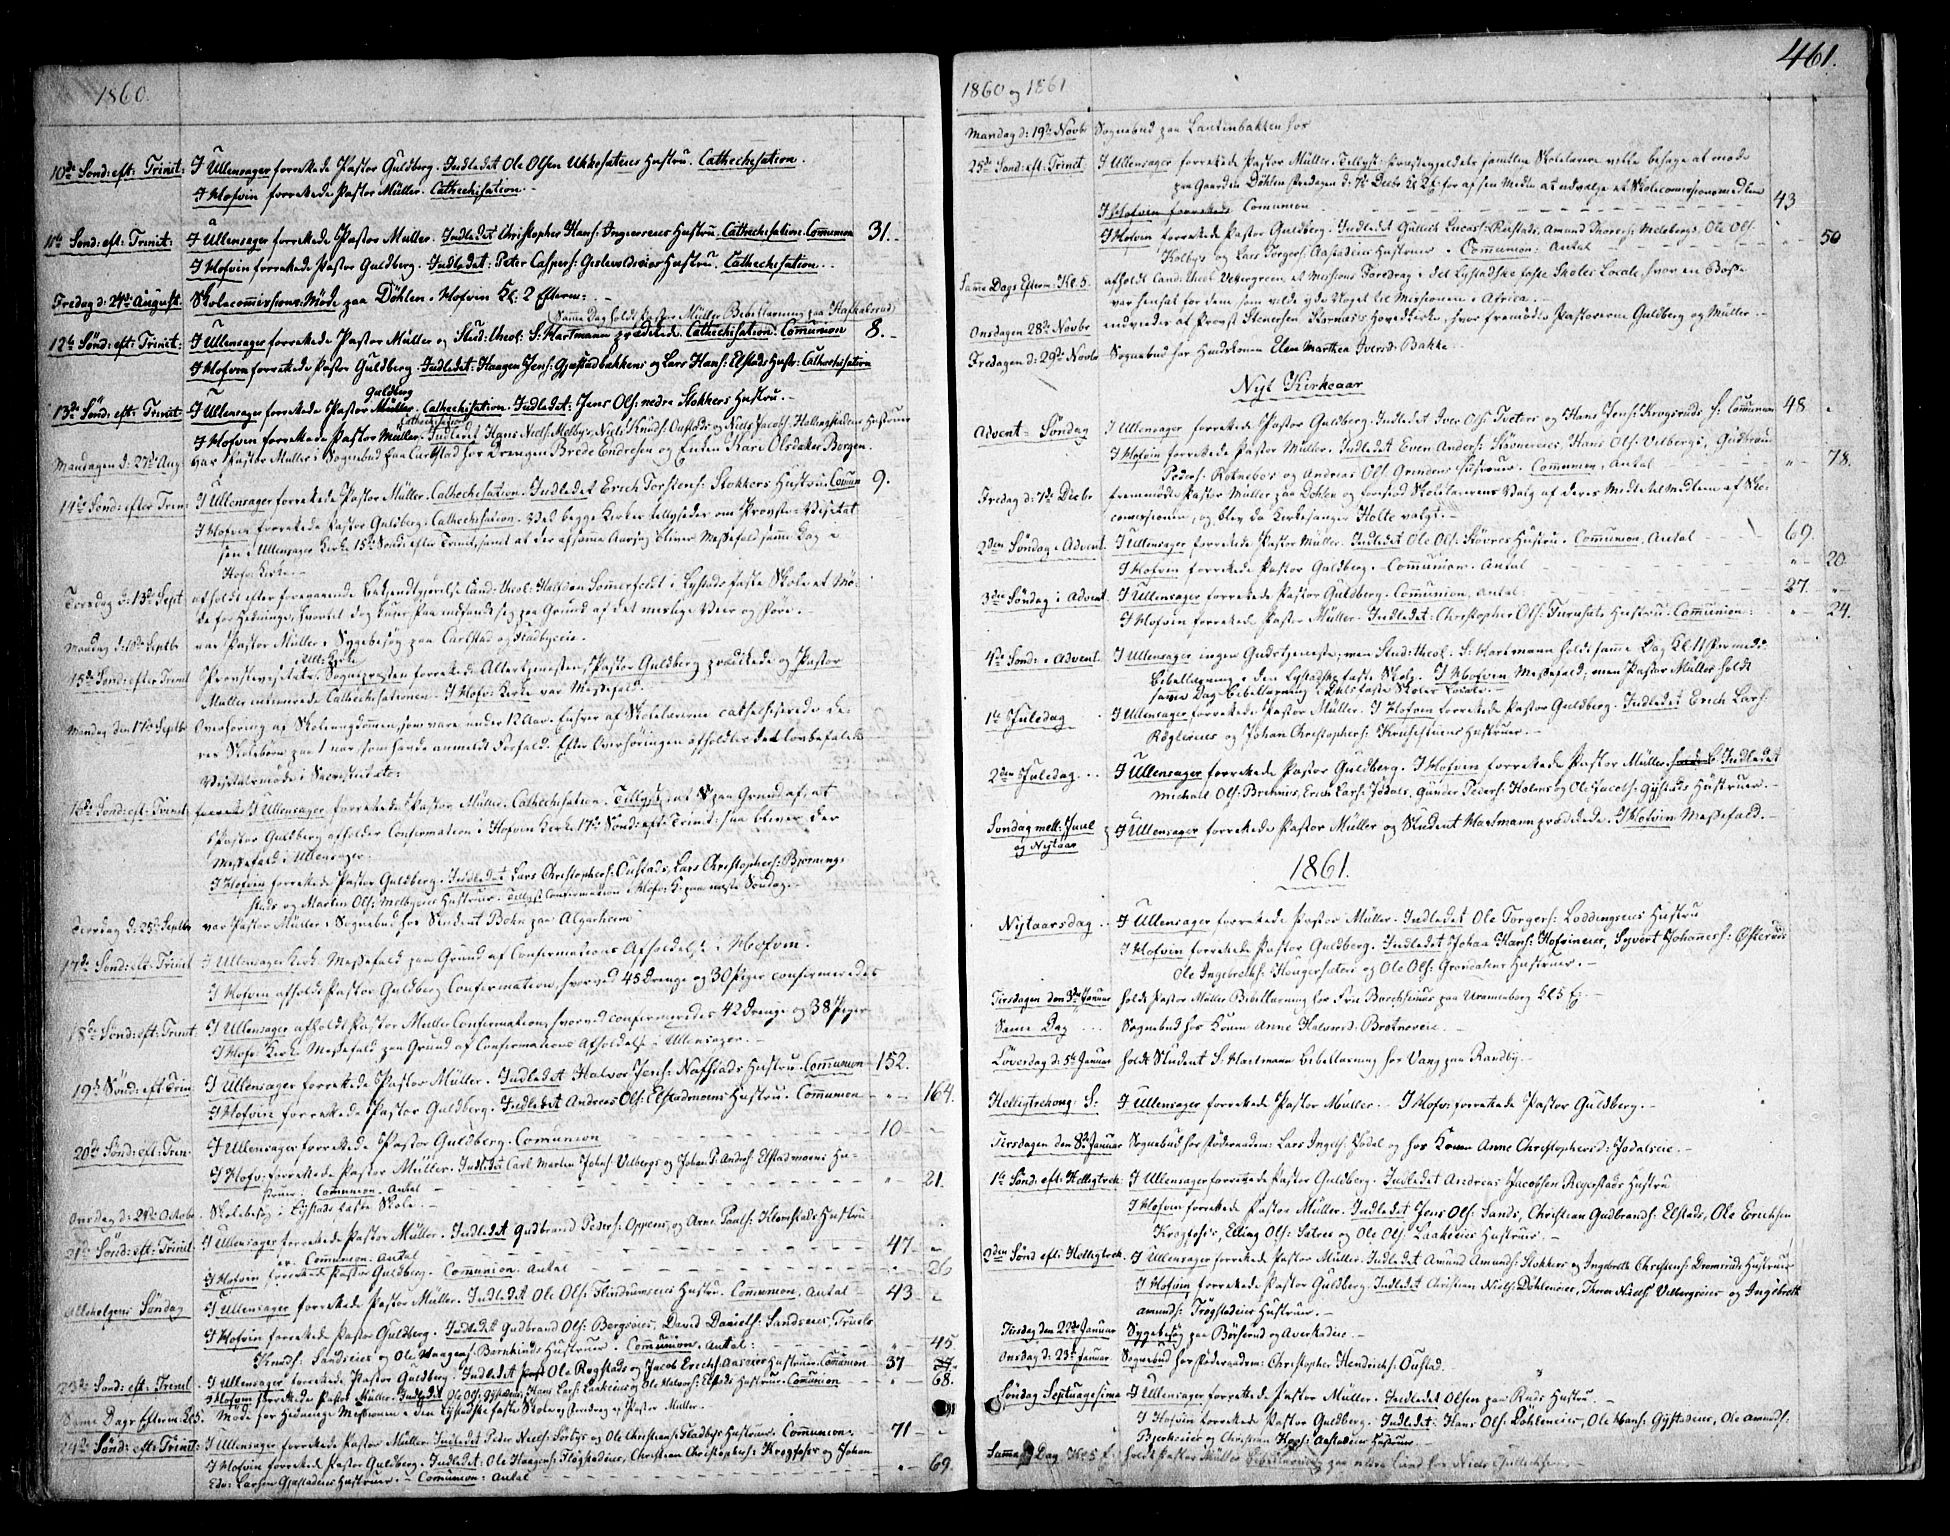 1860.
10de Sönd: eft: Trinit: I Ullensager forrettede Pastor Guldberg. Indledet Ole Olsen Ukkestadeies Hustru. Cathechisation.
I Hofvin forrettede Pastor Müller. Cathechisation.
11te Sönd: eft: Trinit: I Ullensager forrettede Pastor Müller. Indledet Christopher Hans: Hustru. Cathechisation. Communion 31. -
I Hofvin forrettede Pastor Guldberg. Indledet: Peter Caspers: Hustru. Cathechisation.
Fredag d: 24de August. Skolecommissions-Möde paa Döhlen i Hofvin Kl: 2 Efterm:
Samme Dag holdt Pastor Müller Bibellæsning paa
12te Sönd: eft: Trinit: I Ullensager forrettede Pastor Müller og Stud: theol: S. Hartmann prædikede. Cathechisation. Comunion 8. -
I Hofvin forrettede Pastor Guldberg. Indledet: Haagen Jens: Gjæstadbakkens og Lars Hans: Elstads Hustr: Cathechisation
Guldberg
13de Sönd: eft: Trinit: I Ullensager forrettede Pastor Müller. Cathechisation. Indledet: Jens Ols: nedre Stokkers Hustru.
Cathechisation
I Hofvin forrettede Pastor Müller. Indledet Hans Niels: Melbys, Niels Knuds: Oustads og Niels Jacobs: Hustruer
Mandagen d: 27de Aug. Har Pastor Müller i Sognebud paa Carlstad hos Drengen Brede Endresen og Enken Kari Olsdatter Borgen.
14de Sönd: efter Trin: I Ullensager forrettede Pastor Müller. Cathechisation. Indledet Erich Torstens: Stokkers Hustru. Comun 9.
I Hofvin forrettede Pastor Guldberg. Cathechisation. Ved begge Kirker tillystes om Provste-Visitat
sen i Ullensager Kirke 15de Sönd: efter Trinit, samt at der af samme Aarsag bliver Messefald samme Dag i
Hofv: Kirke.
Torsdag d: 13de Sept. afholdt efter foregaaende Bekjendtgjörelse Cand: theol: Sömmerfeldt i Lystads faste Skole et Mö-
de for Hedninge, hvortil dog
Mandag d: Septbr var Pastor Müller i Sygebesög paa Carlstad og
Ull: Kirke
15de Sönd: efter Trinit Provstevisitats. Sognepresten forrettede Altertjenesten, Pastor Guldberg prædikede og Pastor
Müller intimerede Cathechisationen. I Hofv: Kirke var Messefald.
Mandag den 17de Septbr Overhöring af Skoleungdommen, som vare under 12 Aar. Enhver af Skolelærerne cathechiserede de-
res Skolebörn paa 1 nær, som havde anmeldt Forfald. Efter Overhöringen afholdtes det lovbefalede
Visitatsmöde i Sacristiet.
16de Sönd: eft: Trinit: I Ullensager forrettede Pastor Müller. Cathechisation. Tillyst, at paa Grund af at
Pastor Guldberg afholder Confirmation i Hofvin Kirke 17de Sönd: eft: Trinit: saa bliver der
Messefald i Ullensager.
I Hofvin forrettede Pastor Guldberg. Indledet Lars Christophers: Oustads, Lars Christophers: Bjørning-
stads og Martin Ols: Melbyeies Hustruer. Tillyst Confirmation i Hofv: K: paa næste Söndag.
Tirsdag d: 25de Septbr var Pastor Müller i Sognebud hos Student Bohn paa Algarheim.
17de Sönd: eft: Trinit I Ullensager Kirke Messefald paa Grund af Confirmations Afholdelse i Hofvin.
I Hofvin afholdt Pastor Guldberg Confirmation, hvorved 45 Drenge og 30 Piger confirmeredes
18de Sönd: eft: Trinit: I Ullensager afholdt Pastor Müller Confirmation, hvorved confirmeredes 42 Drenge og 38 Piger
I Hofv: Kirke Messefald paa Grund af Confirmations Afholdelse i Ullensager.
19de Sönd: eft: Trin: I Ullensager forrettede Pastor Müller. Indledet Halvor Jens: Nafstads Hustru. Communion 152.
I Hofvin forrettede Pastor Guldberg. Indledet Andreas Ols: Elstadmoens Hustru. Communion 164.
20de Sönd: eft: Trin: I Ullensager forrettede Pastor Guldberg. Comunion 10
I Hofv: forrettede Pastor Müller. Indledet Carl Marten Johns: Velbergs og Johan P: Anders: Elstadmoens Hu-
struer. Communion. Antal 21.
Onsdag d: 24de Octobr. Skolebesög i Lystads faste Skole.
21de Sönd: eft: Trinit: I Ullensager forrettede Pastor Müller. Indledet Gudbrand Peders: Oppens, og Arne Pauls: Klomstads Hustru-
er. Communion. Antal 47
I Hofvin forrettede Pastor Guldberg. Communion. Antal 26
Allehelgens Söndag I Ullensager forrettede Pastor Müller. Indledet Ole Ols: Hustru. Communion, Antal 43
I Hofvin forrettede Pastor Guldberg. Indledet Gudbrand Ols: Bergseies, David Daniels: Sandseies, Truels
Knuds: Sandseies og Ole Haagens: Hustruer. Communion, Antal: 45
23de Sönd: eft: Trinit I Ullensager forrettede Pastor Guldberg. Indledet Ole Rogstads og Jacob Erichs: Aaseies Hustruer. Comunion 37
I Hofvin forrettede Pastor Müller. Indledet Ole Ols: Hans Lars: Laakeies og Ole Halvors: Elstads Hustruer. Comunion 68.
Samme Dags Efterm: Kl 5. Möde for Hednings Missionen i den Lystadske faste Skole og Foredrag af Pastor Müller.
24de Sönd: eft: Trinit: I Ullensager forrettede Pastor Müller. Indledet Peder Niels: Sörbys og Ole Christens: Fladbys Hustruer. Communion. 71
I Hofvin forrettede Pastor Guldberg. Indledet: Ole Haagens: Flögstadeies, Christian Christophers: Krogfoss og Johan
Edv: Larsen Gjestadeies Hustruer. Communion: Antal 69.
461.
1860 og 1861
Mandag d: 19de Novbr Sognebud paa hos
25de Sönd: eft: Trinit. I Ullensager forrettede Pastor Müller. Tillyst: Præstegjeldets samtlige Skolelærere ville behage at möde
paa Gaarden Döhlen Fredagen d: 7de Decbr Kl 2 Ef: for af sin Medte at udvælge et Skolecommissionsmedlem
I Hofvin forrettede Comunion 43
I Hofvin forrettede Pastor Guldberg. Indledet Gulbich Lucas: Rustads, Amund Thores: Melebergs, Ole Ols:
Kolbys og Lars Torgers: Aastadeies Hustruer. Communion: Antal 50
Samme Dags Efterm: Kl. 5. afholdt Cand: theol: Vettergreen et Missions Foredrag i det Lystadske faste Skoles Locale, hvor en Bösse
var hensat for dem som vilde yde Noget til Missionen i Africa.
Onsdagen 28de Novbr indviedes af Provst Stenersen Kirkes Hovedkirke, hvor fremmödte Pastorerne Guldberg og Müller.
Fredagen d: 29de Novbr Sognebud hos Huuskonen Elen Marthea Iversd: Bakke.
Nyt Kirkeaar
Advent-Söndag I Ullensager forrettede Pastor Guldberg. Indledet Iver Ols: Tveters og Hans Jens: Krogsruds H: Comunion 48.
I Hofvin forrettede Pastor Müller. Indledet Even Anders: Hans Ols: Velbergs, Gudbrand
Peders: Rotnebos og Andreas Ols: Grindens Hustruer. Communion, Antal 78.
Fredag d: 7de Decbr fremmödte Pastor Müller paa Döhlen og forestod Skolelærernes Valg af deres Medte til Medlem af Sko-
comissionen, og blev da Kirkesanger Holte valgt.
2den Söndag i Advent I Ullensager forrettede Pastor Müller. Indledet Ole Ols: Hustru. Communion, Antal 69.
I Hofvin forrettede Pastor Guldberg. Communion. Antal 20
3die Söndag i Advent I Ullensager forrettede Pastor Guldberg. Communion, Antal 27.
I Hofvin forrettede Pastor Müller. Indledet: Christopher Ols: Hustru. Communion: 24.
4de Sönd: i Advent. I Ullensager ingen Gudstjeneste; men Stud: theol. S. Hartmann holdt samme Dag Kl 11 Formedd:
Bibellæsning i den Lystadske faste Skole. I Hofvin Messefald; men Pastor Müller holdt
samme Dag Bibellæsning i faste Skoles Locale.
1te Juledag I Ullensager forrettede Pastor Müller. I Hofvin forrettede Pastor Guldberg. Indledet Erich Lars:
Röglieies og Johan Christophers: Hustruer.
2den Juledag I Ullensager forrettede Pastor Guldberg. I Hofvin forrettede Pastor Müller. Indledet
Michael Ols: Brekmoes, Erich Lars: Jödals, Gunder Peders: Holms og Ole Jacobs: Gystads Hustruer.
Söndag mell: Juul
og Nytaar I Ullensager forrettede Pastor Müller og Student Hartmann prædikede. I Hofvin Messefald.
1861.
Nytaarsdag I Ullensager forrettede Pastor Müller. Indledet Ole Torgers: Loddingseies Hustru
I Hofvin forrettede Pastor Guldberg. Indledet Johan Hans: Hofvineies, Syvert Johannes: Østeruds
Ole Ingebreths: Haugersæters og Ole Ols: Grøndalens Hustruer.
Tirsdagen den 3die Januar holdt Pastor Müller Bibellæsning hos Fru paa Uranienborg Kl 5 Ef:
Samme Dag Sognebud hos Konen Anne Halvorsd: Brotneeie.
Löverdag d: 5te Januar holdt Student S: Hartmann Bibellæsning hos Vang paa Randby.
Helligtrekong: S: I Ullensager forrettede Pastor Müller. I Hofv: forrettede Pastor Guldberg.
Tirsdagen den 8de Januar Sognebud hos Föderaadm: Lars Ingels: Jödal og hos Konen Anne Christophersd: Jödalseie.
1te Sönd: eft: Helligtrek. I Ullensager forrettede Pastor Guldberg. Indledet Andreas Jacobsen Hustru
I Hofvin forrettede Pastor Müller. Indledet Jens Ols: Sands, Christian Gudbrands: Elstads, Ole Erichsen
Krogfoss, Elling Ols: Sætres og Ole Ols: Laakeies Hustruer.
2den Sönd eft: Helligtrek. I Ullensager forrettede Pastor Müller. Indledet Amund Amunds: Stokkers og Ingebreth Christens: Hustruer
I Hofvin forrettede Pastor Guldberg. Indledet Christian Niels: Döhleneies, Thorer Niels: Velbergseies og Ingebreth
Amunds: Trögstadeies Hustruer.
Tirsdag den 22de Januar Sygebesög paa og
Onsdag d: 23de Januar Sognebud hos Föderaadm: Christopher Hendrichs: Oustad.
Söndag Septuagesima I Ullensager forrettede Pastor Müller. Indledet Olsen paa Ruds Hustru.
I Hofvin forrettede Pastor Guldberg. Indledet: Hans Ols: Döhleneies, Ole Hans: Gystadeies, Ole Amunds:
Bjerkeeies og Christian Aastadeies Hustruer.
Samme Dag Kl 5 E: holdt Pastor Müller Bibellæsning paa hos Niels